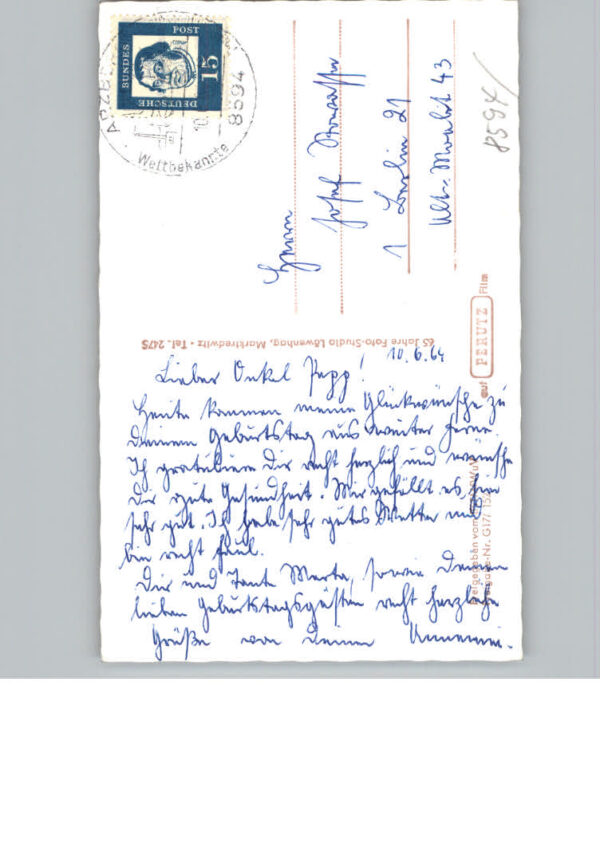 DEUTSCHE
BUNDES
POST
15
ARZBE
8594
Weltbekannte
8594
Herrn
Josef
1 Berlin 21
Alt-Moabit 43
65 Jahre Foto-Studio Löwenhag, Marktredwitz · Tel. 2475
auf PERUTZ Film
Freigegeben vom
10.6.64
Lieber Onkel Pepp!
Heute kommen meine Glückwünsche zu
Deinem Geburtstag aus weiter Ferne.
Ich gratuliere Dir recht herzlich und wünsche
Dir gute Gesundheit. Mir gefällt es hier
sehr gut. Ich habe sehr gutes Wetter und
bin recht faul.
Dir und Tante Marta, sowie Deinen
lieben Geburtstagsgästen recht herzliche
Grüße von Deiner Annemei.